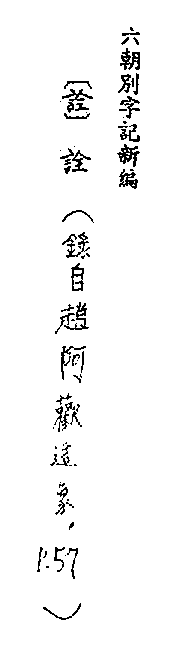 六朝別字記新編
〔詮〕詮（錄自趙阿歡造象，P.57）